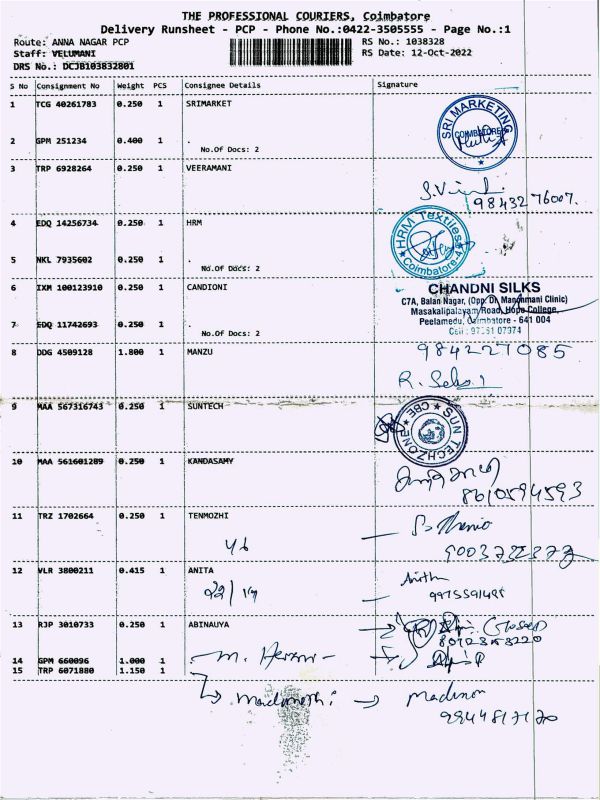 THE PROFESSIONAL COURIERS, Coimbatore
Delivery Runsheet - PCP - Phone No.:0422-3505555 - Page No.:1
Route: ANNA NAGAR PCP
RS No.: 1038328
Staff: VELUMANI
RS Date: 12-Oct-2022
DRS No.: DCJB103832801
S No Consignment No Weight PCS Consignee Details Signature
1 TCG 40261783 0.250 1 SRIMARKET
SRI MARKETING
COIMBATORE
2 GPM 251234 0.400 1 .
No.Of Docs: 2
3 TRP 6928264 0.250 1 VEERAMANI
9843276007.
4 EDQ 14256734 0.250 1 HRM
HRM Textiles
Coimbatore-4
5 NKL 7935602 0.250 1 .
No.Of Docs: 2
6 IXM 100123910 0.250 1 CANDIONI
CHANDNI SILKS
C7A, Balan Nagar, (Opp. Dr. Manonmani Clinic)
Masakalipalayam Road, Hope College,
Peelamedu, Coimbatore - 641 004
7 EDQ 11742693 0.250 1 .
No.Of Docs: 2
8 DDG 4509128 1.800 1 MANZU
984227085
9 MAA 567316743 0.250 1 SUNTECH
SUN TECHZONE
CBE
10 MAA 561601289 0.250 1 KANDASAMY
8610594593
11 TRZ 1702664 0.250 1 TENMOZHI
12 VLR 3800211 0.415 1 ANITA
Anith
13 RJP 3010733 0.250 1 ABINAUYA
14 GPM 660096 1.000 1
15 TRP 6071880 1.150 1